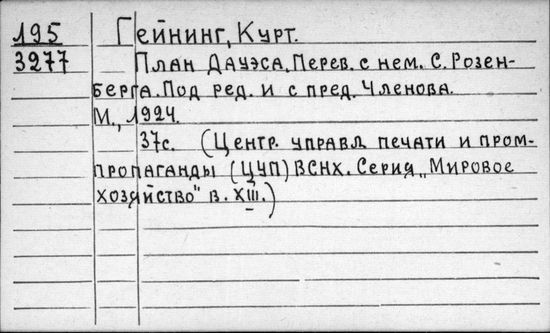 195 Гейнинг, Курт.
3277 План Дауэса. Перев. с нем. С. Розен-
берга. Под ред. и с пред. Членова.
М., 1924.
37с. (Центр. управл. печати и пром-
пропаганды (ЦУП) ВСНХ. Серия „Мировое
хозяйство" в. XIII.)